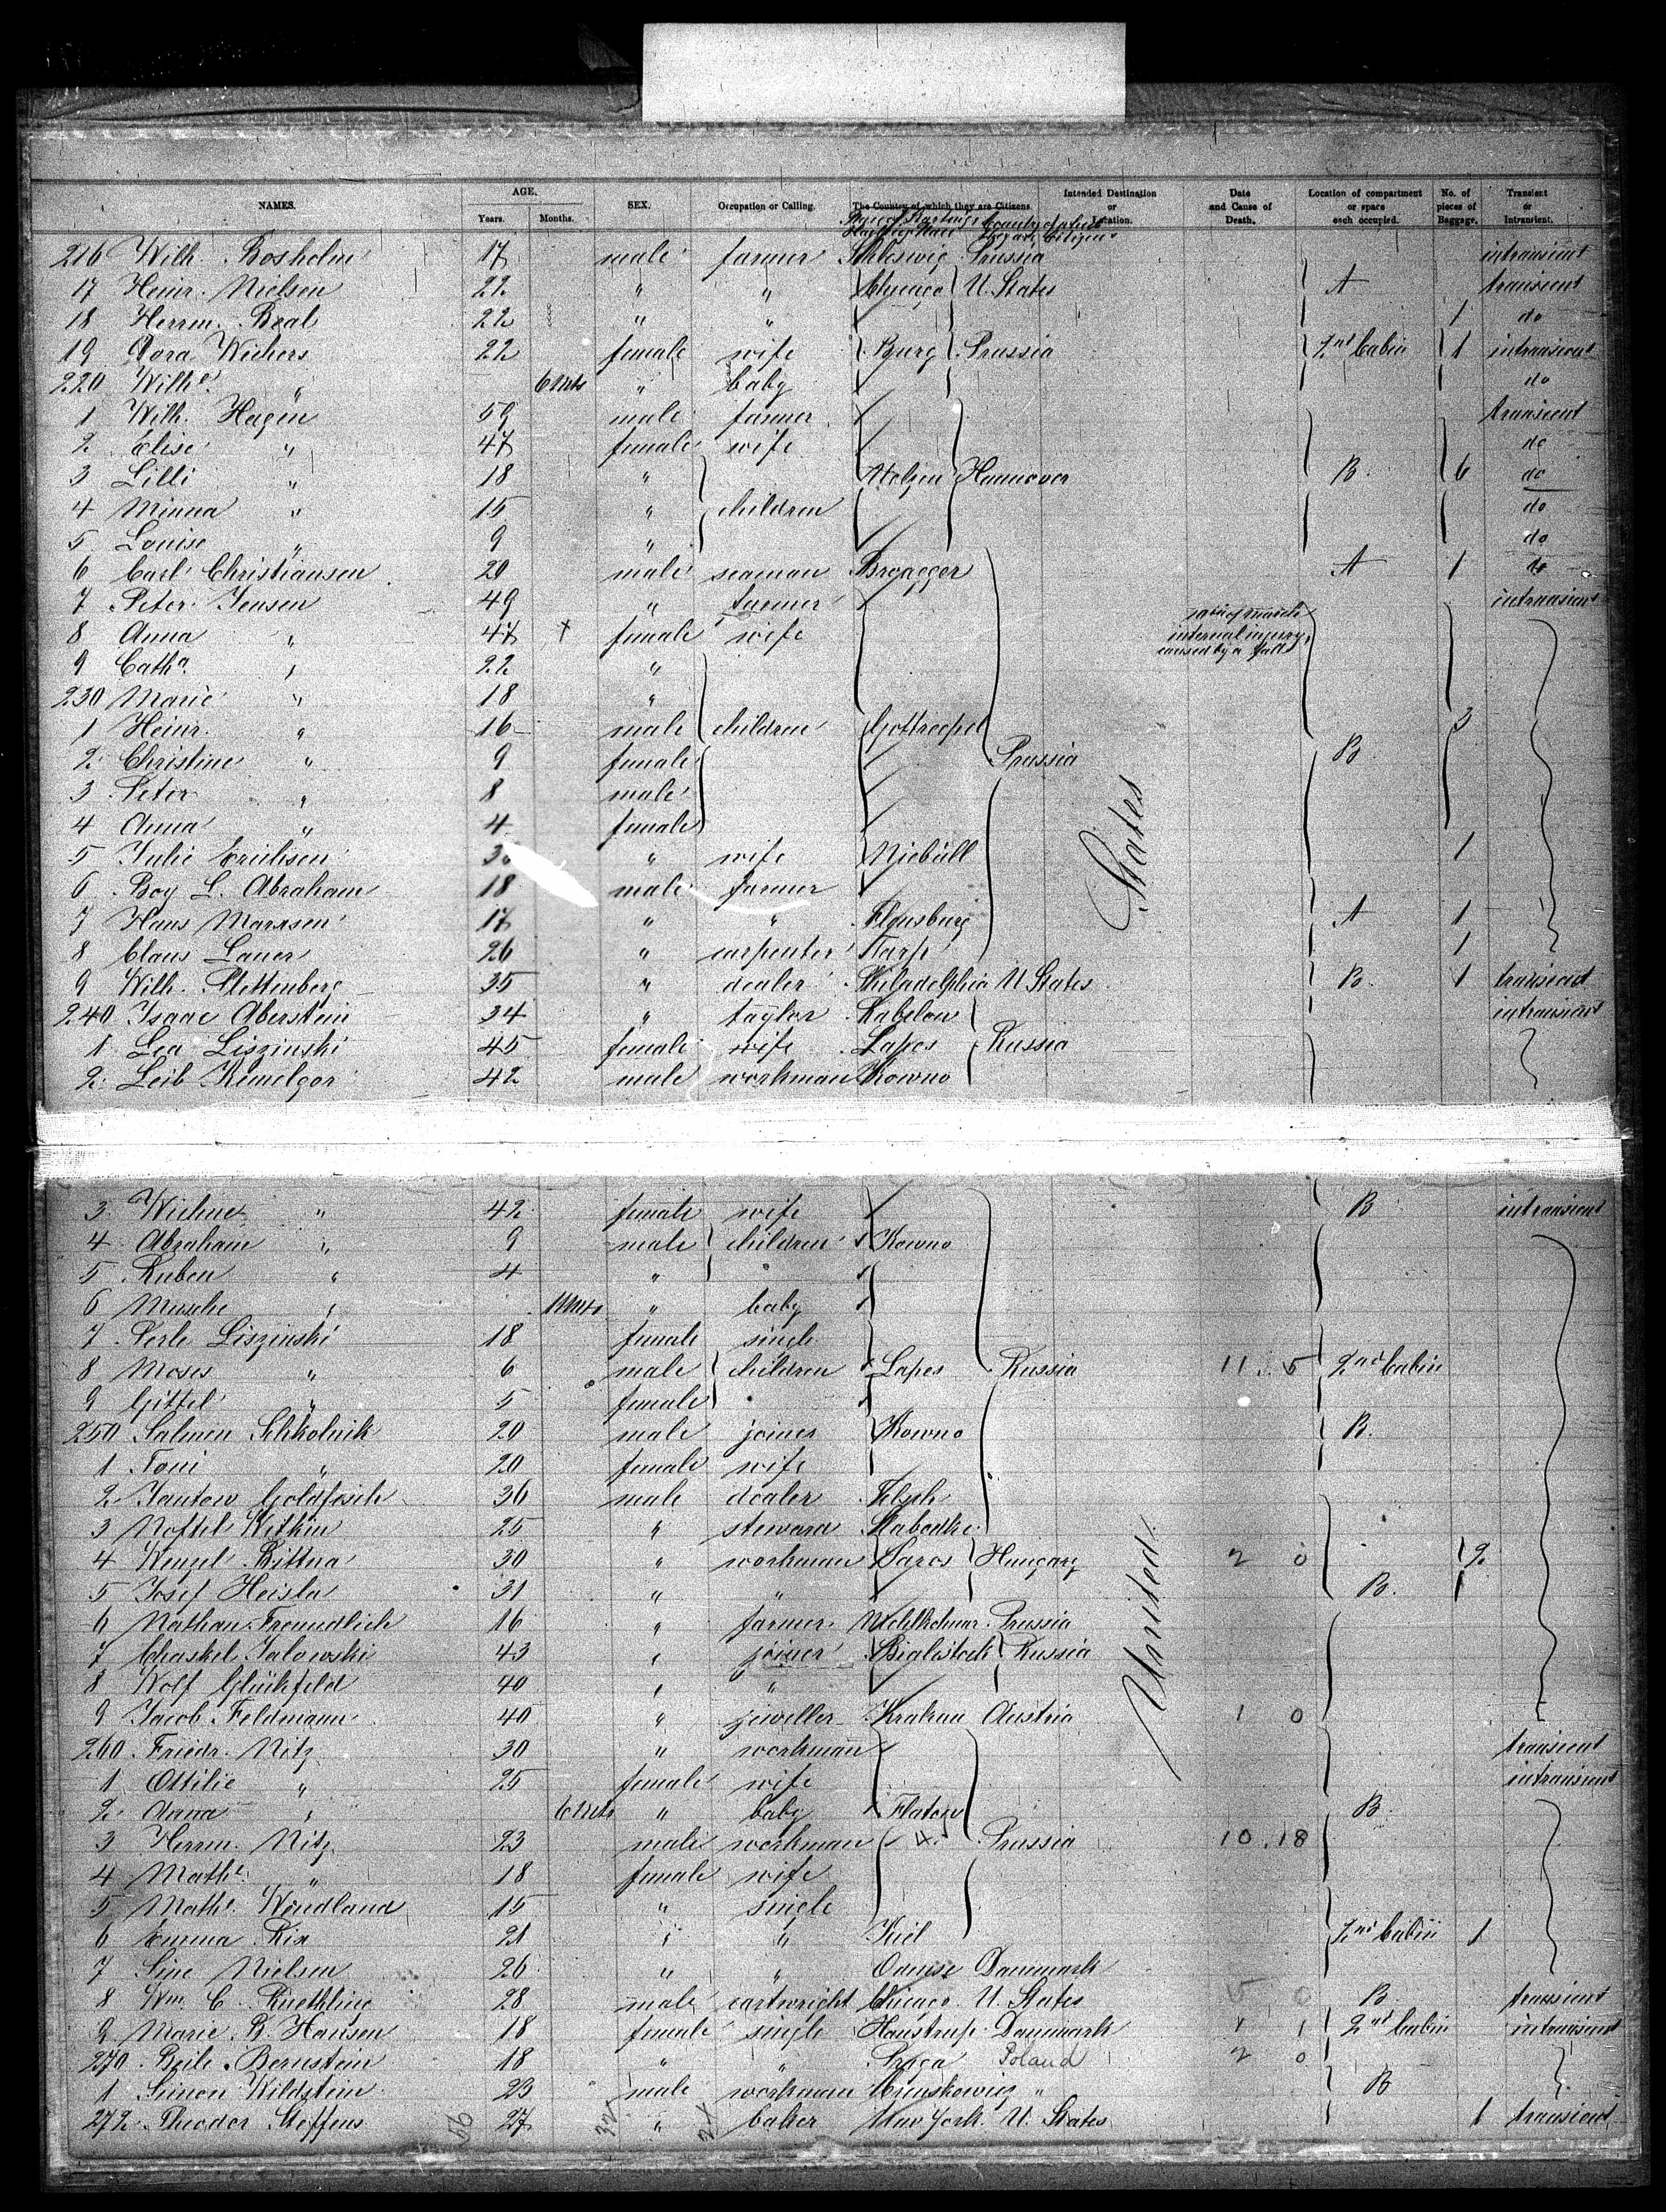 NAMES. AGE. Years. Months. SEX. Occupation or Calling. The Country of which they are Citizens. Intended Destination or Location. Date and Cause of Death. Location of compartment or space each occupied. No. of pieces of Baggage. Transient or Intransient.
Country of which they are Citizens
216 Wilh. Bosholm 17 male farmer Schleswig Prussia intransient
17 Heinr. Nielsen 22 " " Chicago U. States A transient
18 Herrm. Beal 22 " " 1 do
19 Dora Wichers 22 female wife Burg Prussia 2nd Cabin 1 intransient
220 Wilhe. " 6 Mts " baby do
1 Wilh. Hagen 59 male farmer transient
2 Elise " 47 female wife do
3 Lilli " 18 " Uelzen Hannover B. 6 do
4 Minna " 15 " children do
5 Louise " 9 " do
6 Carl Christiansen 20 male seaman Broacger A 1 do
7 Peter Jensen 49 " farmer intransient
8 Anna " 47 + female wife of March internal injury caused by a fall
9 Catha. " 22 "
230 Marie " 18 "
1 Heinr. " 16 male children Gottrupel 3
2 Christine " 9 female Prussia B
3 Peter " 8 male
4 Anna " 4 female
5 Julie Erichsen " wife Niebüll 1
6 Boy L. Abraham 18 male farmer
7 Hans Marxsen 17 " " Flensburg A 1
8 Claus Lauer 26 " carpenter Tarp 1
9 Wilh. Plettenberg 35 " dealer Philadelphia U States B. 1 transient
240 Isaac Aberstein 34 " taylor Kabelow intransient
1 Lea Liszinski 45 female wife Lapes Russia
2 Leib Kemelgor 42 male workman Kowno
States
3 Wichne " 42 female wife B. intransient
4 Abraham " 9 male children Kowno
5 Ruben " 4 "
6 Musche " 11 Mts " baby
7 Perle Liszinski 18 female single
8 Moses " 6 male children Lapes Russia 11. 5 2nd Cabin
9 Gittel " 5 female
250 Salmen Schkolnik 20 male joiner Kowno B.
1 Toni " 20 female wife
2 Jantow Goldfisch 36 male dealer Telsch
3 Noftel Within 25 " steward Slabodke
4 Wenzel Bittna 30 " workman Saros Hungary 2 0 2
5 Josef Heisla 31 " " B.
6 Nathan Freundlich 16 " farmer Prussia
7 Chaskel Jalowski 43 " joiner Bialistock Russia
8 Wolf Glückfeld 40 " "
9 Jacob Feldmann 40 " jeweller Krakau Austria 1 0
260 Friedr. Nitz 30 " workman transient
1 Ottilie " 25 female wife intransient
2 Anna " 6 Mts " baby Flatow B.
3 Herrm. Nitz 23 male workman 4. Prussia 10.18
4 Mathe. " 18 female wife
5 Mathe. Wendland 15 " single
6 Emma Rix 21 " " Kiel 2nd Cabin 1
7 Sine Nielsen 26 " " Odense Danmark
8 Wm. C. Ruethling 28 male cartwright Chicago U. States 5 0 B. transient
9 Marie B. Hansen 18 female single Haustrup Danmark 1 1 2nd Cabin intransient
270 Beile Bernstein 18 " " Poland 2 0
1 Simon Wildstein 23 male workman " B
272 Theodor Steffens 27 " baker New York U. States 1 transient
United
56 32 24